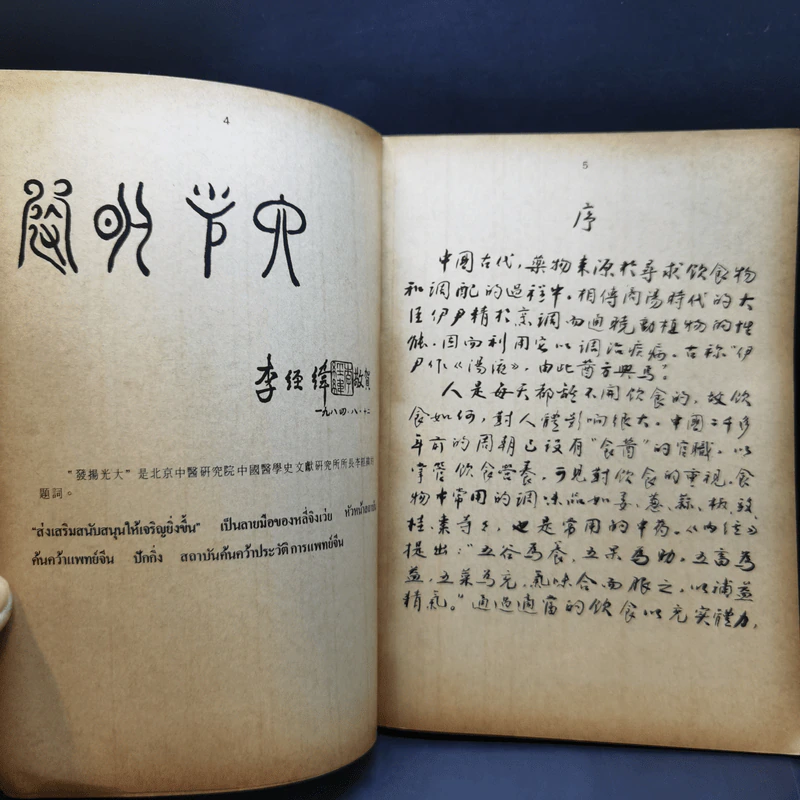 4
發揚光大
李经緯 敬賀
一九八四.八.十二
"發揚光大"是北京中醫研究院中國醫學史文獻研究所所長李經緯的
題詞。
"ส่งเสริมสนับสนุนให้เจริญยิ่งขึ้น" เป็นลายมือของหลี่จิงเว่ย หัวหน้าสถาบัน
ค้นคว้าแพทย์จีน ปักกิ่ง สถาบันค้นคว้าประวัติการแพทย์จีน
5
序
中國古代，藥物来源於尋求飲食物
和调配的過程中。相傳商湯時代的大
臣伊尹精於烹調而通曉動植物的性
能，因而利用它以調治疾病。古称"伊
尹作《湯液》，由此醫方興焉"。
人是每天都離不開飲食的，故飲
食如何，對人體影响很大。中國二千多
年前的周朝已設有"食醫"的官職，以
掌管飲食營養，可見對飲食的重视。食
物中常用的调味品如姜、蔥、蒜、椒、豉
桂、棗等，也是常用的中药。《内经》
提出："五谷為養，五果為助，五畜為
益，五菜為充，氣味合而服之，以補益
精氣。"通過適當的飲食以充实體力，